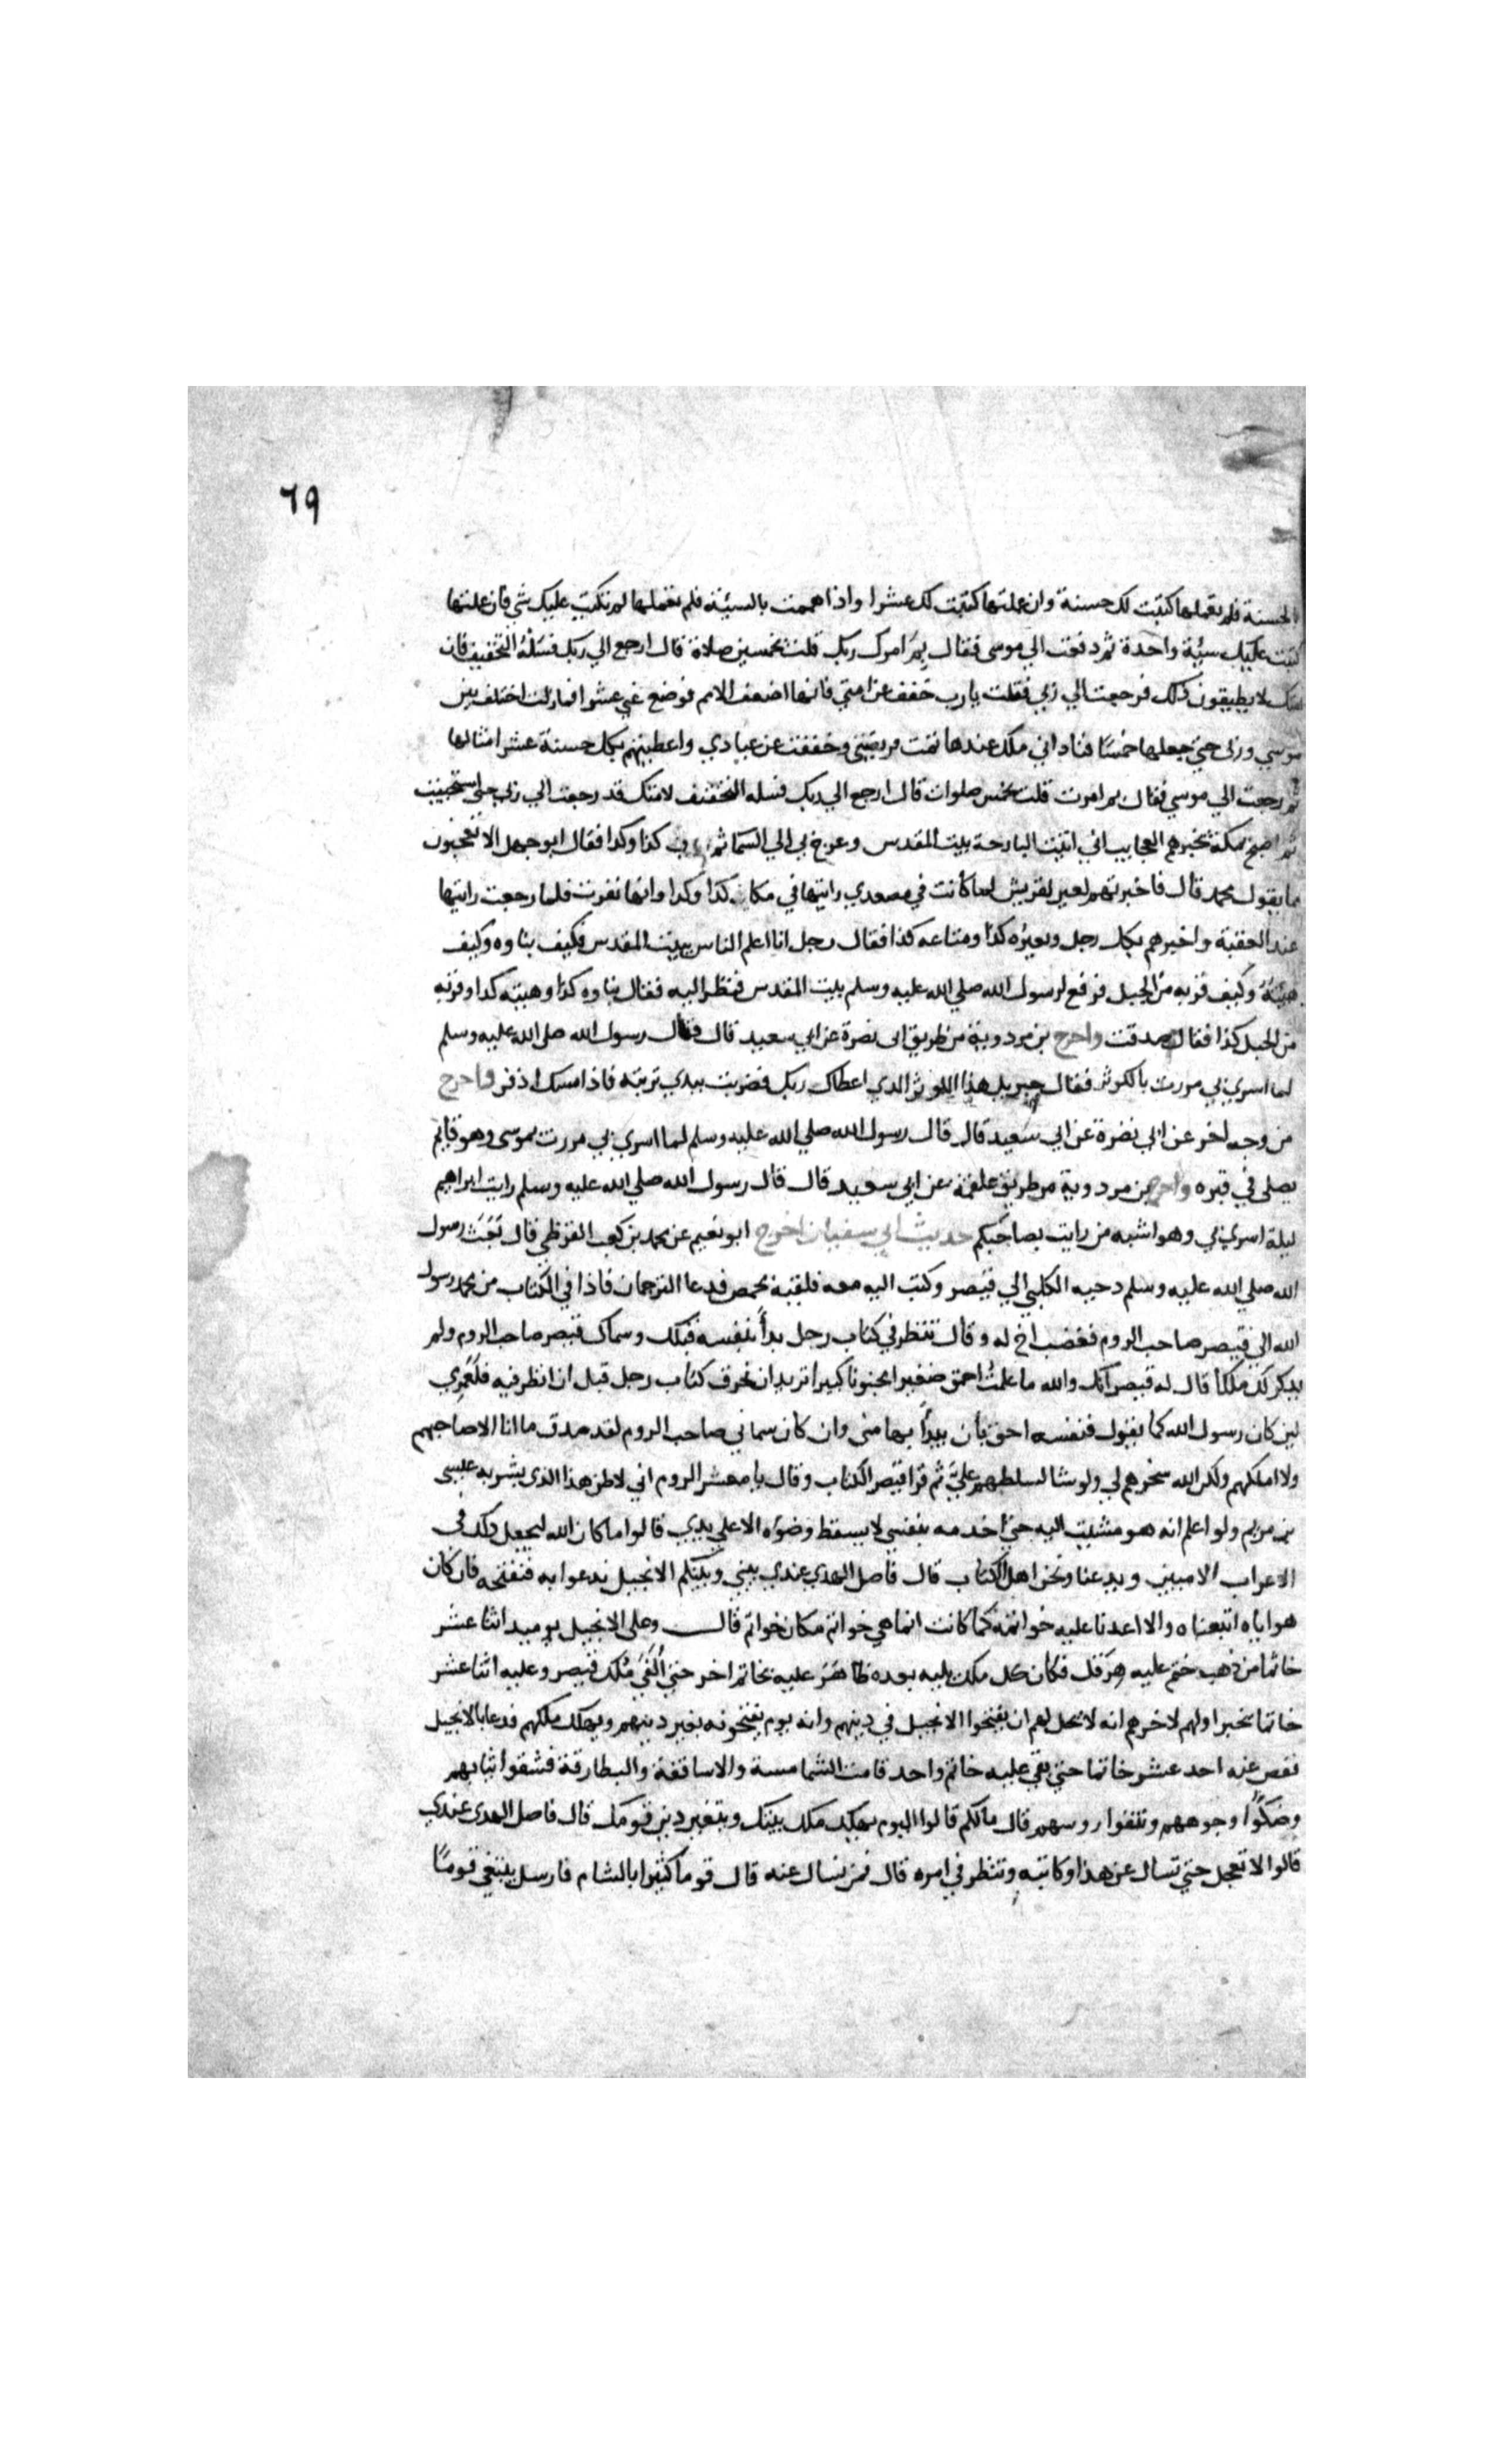 ٦٩
بالحسنة فلم تعملها كتبت لك حسنة وان عملتها كتبت لك عشرا واذا هممت بالسيئة فلم تعملها لم تكتب عليك شي فان عملتها
كتبت عليك سيئة واحدة ثم دفعت الي موسى فقال بم امرك ربك قلت بخمسين صلاة قال ارجع الي ربك فسله التخفيف فان
امتك لا يطيقون ذلك فرجعت الي ربي فقلت يا رب خفف عن امتي فانها اضعف الامم فوضع عني عشرا فما زلت اختلف بين
موسي وربي حتي جعلها خمسا فناداني ملك عندها تمت فريضتي وخففت عن عبادي واعطيتهم بكل حسنة عشر امثالها
ثم رجعت الي موسي فقال بم امرت قلت بخمس صلوات قال ارجع الي ربك فسله التخفيف لامتك قد رجعت الي ربي حتي استحييت
ثم اصبح بمكة يخبرهم العجايب اني اتيت البارحة بيت المقدس وعرج بي الي السما ثم رايت كذا وكذا فقال ابو جهل الا تعجبون
ما يقول محمد قال فاخبرتهم لعير لقريش لما كانت في مصعدي رايتها في مكان كذا وكذا وانها نفرت فلما رجعت رايتها
عند العقبة واخبرهم بكل رجل وبعيره كذا ومتاعه كذا فقال رجل انا اعلم الناس ببيت المقدس فكيف بناوه وكيف
هيئة وكيف قربه من الجبل فرفع لرسول الله صلي الله عليه وسلم بيت المقدس فنظر اليه فقال بناوه كذا وهيته كذا وقربه
من الجبل كذا فقال صدقت واخرج بن مردوية من طريق ابى نضرة عن ابي سعيد قال قال رسول الله صلى الله عليه وسلم
لما اسري بي مررت بالكوثر فقال جبريل هذا الكوثر الذي اعطاك ربك فضربت بيدي تربته فاذا مسك اذفر واخرج
من وجه اخر عن ابي نضرة عن ابي سعيد قال قال رسول الله صلي الله عليه وسلم لما اسري بي مررت بموسى وهو قايم
يصلى في قبره واخرج بن مردوية من طريق علقمة عن ابي سعيد قال قال رسول الله صلي الله عليه وسلم رايت ابراهيم
ليلة اسري بي وهو اشبه من رايت بصاحبكم حديث ابي سفيان اخرج ابو نعيم عن محمد بن كعب القرظي قال بعث رسول
الله صلي الله عليه وسلم دحيه الكلبي الي قيصر وكتب اليه معه فلقيه بحمص فدعا الترجمان فاذا في الكتاب من محمد رسول
الله الي قيصر صاحب الروم فغضب اخ له وقال تنظر في كتاب رجل بدأ بنفسه قبلك وسماك قيصر صاحب الروم ولم
يذكر لك ملكا قال له قيصر انك والله ما علمت احمق صغيرا مجنونا كبيرا تريد ان تخرق كتاب رجل قبل ان انظر فيه فلعمري
لين كان رسول الله كما يقول فنفسه احق بأن يبدأ بها منى وان كان سماني صاحب الروم لقد صدق ما انا الا صاحبهم
ولا املكهم ولكن الله سخرهم لي ولو شا لسلطهم علي ثم قرا قيصر الكتاب وقال يا معشر الروم اني لاظن هذا الذي بشر به عيسى
بن مريم ولو اعلم انه هو مشيت اليه حتي اخدمه بنفسي لا يسقط وضوه الا علي يدي قالوا ما كان الله ليجعل ذلك في
الاعراب الاميين ويدعنا ونحن اهل الكتاب قال فاصل الهدي عندي بيني وبينكم الانجيل ندعوا به فنفتحه فان كان
هو اياه اتبعناه والا اعدنا عليه خواتمه كما كانت انما هي خواتم مكان خواتم قال وعلى الانجيل يوميد اثنا عشر
خاتما من ذهب ختم عليه هرقل فكان كل ملك يليه بعده ظاهر عليه بخاتم اخر حتي الفي ملك قيصر وعليه اثنا عشر
خاتما يخبر اولهم لاخرهم انه لا يحل لهم ان يفتحوا الانجيل في دينهم وانه يوم يفتحونه يغير دينهم ويهلك ملكهم فدعا بالانجيل
نفص عنه احد عشر خاتما حتي بقي عليه خاتم واحد قامت الشمامسة والاساقفة والبطارقة فشقوا ثيابهم
وصكوا وجوههم ونتفوا روسهم قال مالكم قالوا اليوم يهلك ملك بيتك ويتغير دين قومك قال فاصل الهدى عندي
قالوا لا تعجل حتي تسال عن هذا وكاتبه وتنظر في امره قال فمن نسال عنه قال قوما كثيرا بالشام فارسل يبتغي قوما